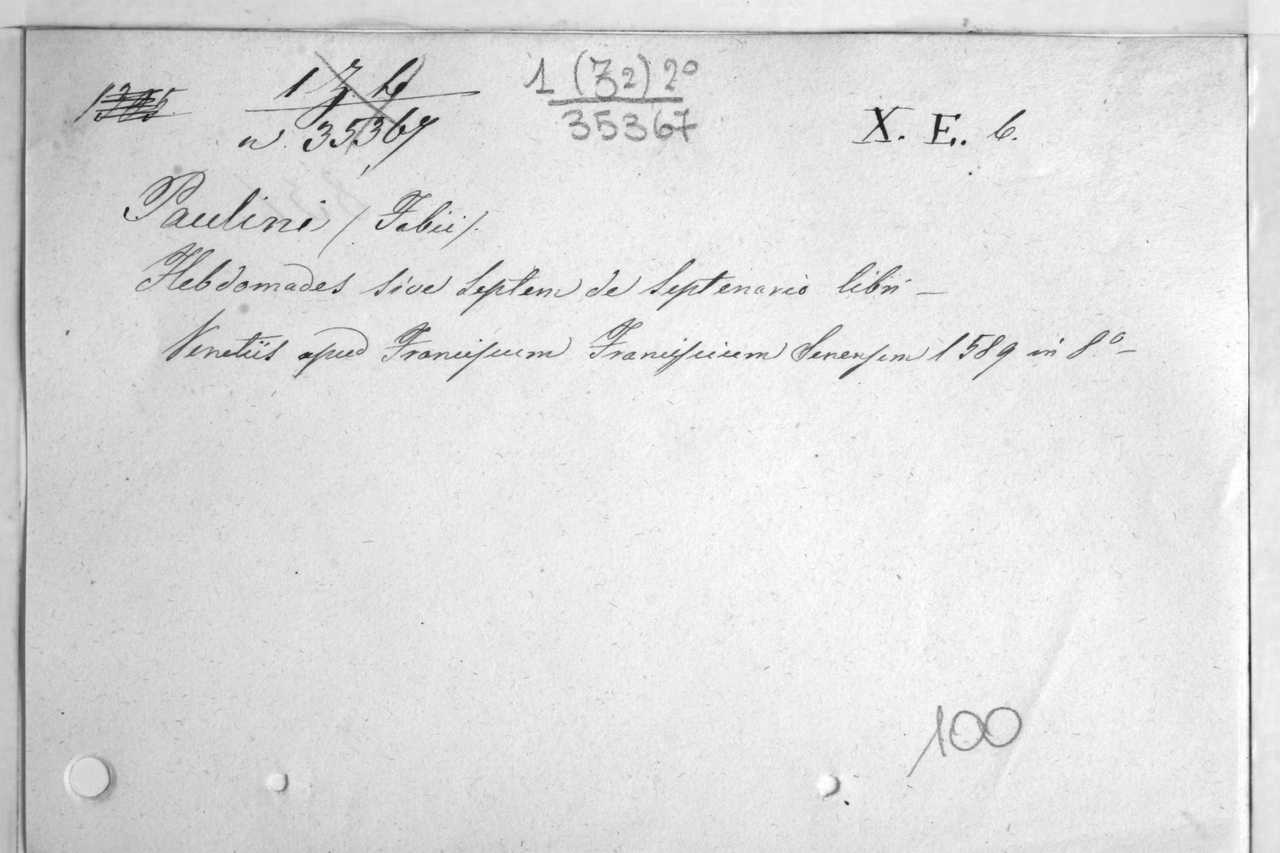 1 Z. 6
1 (Z2) 2º
n. 35367
35367
X. E. 6.
Paulini (Fabii).
Hebdomades sive septem de septenario libri —
Venetiis apud Franciscum Franciscium Senensem 1589 in 8.º —
100